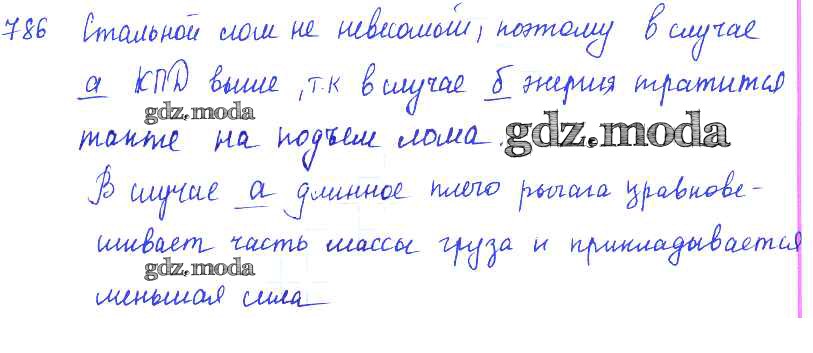 786 Стальной лом не невесомый, поэтому в случае
а КПД выше, т.к в случае б энергия тратится
gdz.moda
также на подъем лома.
gdz.moda
В случае а длинное плечо рычага уравнове-
шивает часть массы груза и прикладывается
gdz.moda
меньшая сила